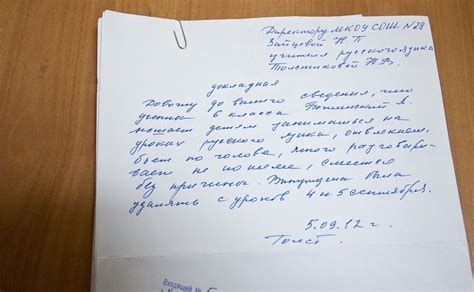 Директору МКОУ СОШ №28
Зайцевой Н.П.
учителя русского языка
Толстиковой Н.В.
докладная
Довожу до вашего сведения, что
ученик 6 класса Л.
мешает детям заниматься на
уроках русского языка, отвлекает,
бьет по голове, много разговари-
вает не по теме, смеётся
без причины. Вынуждена была
удалить с уроков 4 и 5 сентября.
5.09.12 г.
Толст.
Входящий №